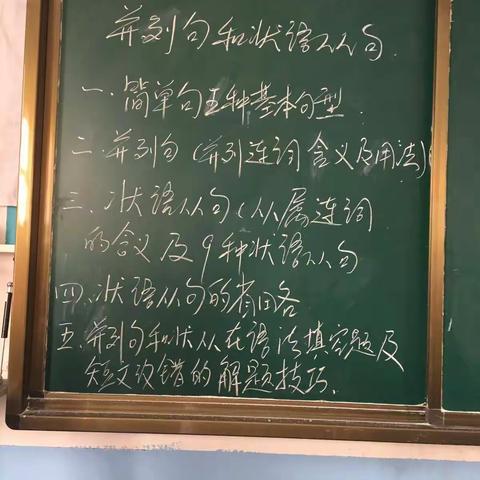 并列句和状语从句.
一. 简单句五种基本句型.
二. 并列句(并列连词含义及用法)
三、状语从句(从属连词
的含义及9种状语从句
四、状语从句的省略
五. 并列句和状从在语法填空题及
短文改错的解题技巧.